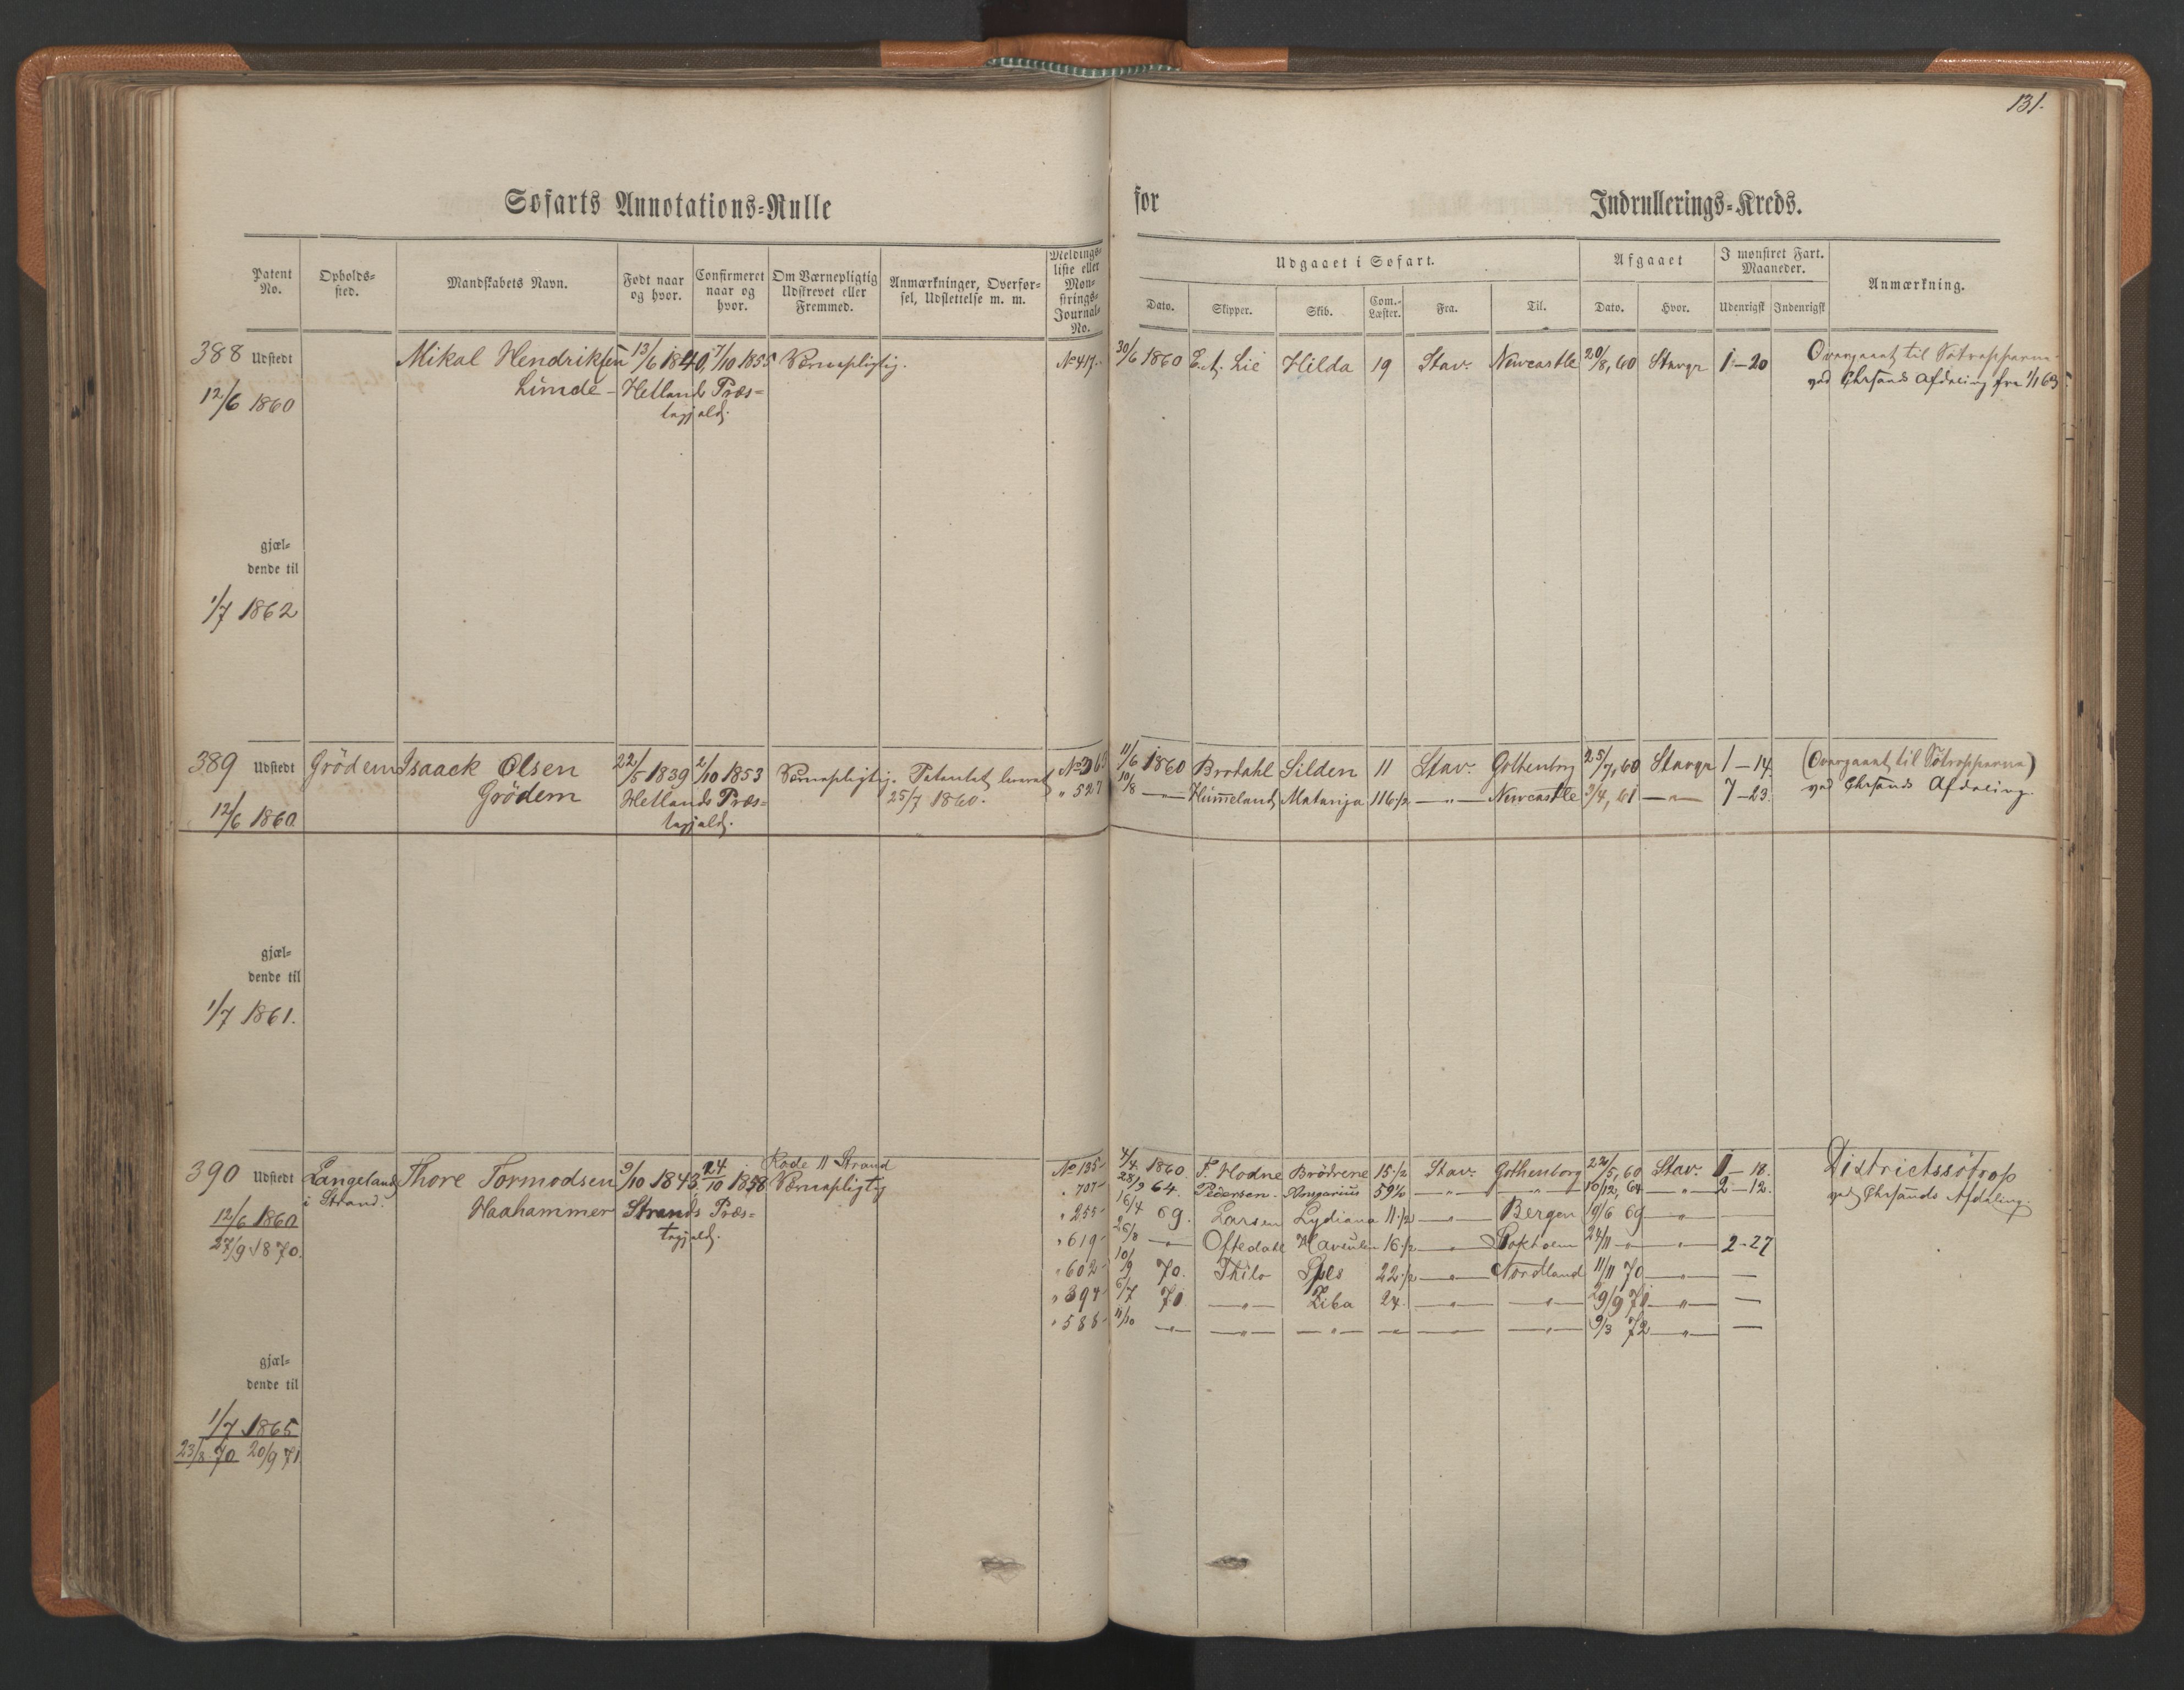 131.
Søfarts Annotations-Rulle for Indrullerings-Kreds.
Patent No.
Opholds-sted.
Mandskabets Navn.
Født naar og hvor.
Confirmeret naar og hvor.
Om Værnepligtig Udskrevet eller Fremmed.
Anmærkninger, Overfør-sel, Udslettelse m. m.
Meldings-liste eller Mon-strings-Journal-No.
Udgaaet i Søfart.
Dato. Skipper. Skib. Com.-Læster. Fra. Til.
Afgaaet
Dato. Hvor.
I mønstret Fart. Maaneder.
Udenrigsk Indenrigsk
Anmærkning.
388 Udstedt Mikal Hendriksen 13/6 1840, 7/10 1855 Værnepligtig. No 417. 30/6 1860 E. A. Lie Hilda 19 Stav. Newcastle 20/8, 60 Stavgr 1-20 Overgaaet til Søtropperne
12/6 1860 Linnde - Hetlands Præs= ved Chrsands Afdeling fra 1/1 63.
tegjeld.
gjæl-
dende til
1/7 1862
389 Udstedt Grödem Isaack Olsen 22/5 1839 2/10 1853 Værnepligtig. Patentet leveret No 363 11/6 1860 Brodahl Silden 11 Stav. Gothenborg 25/7, 60 Stavgr 1-14. (Overgaaet til Søtropperne)
12/6 1860 Grödem Hetlands Præs= 25/7 1860. " 527 10/8 —"— Hummeland Matanja 116 1/2 —"— Newcastle 3/4, 61 —"— 7-23. ved Chrsands Afdeling.
tegjeld.
gjæl-
dende til
1/7 1861.
390 Udstedt Langeland Thore Tormodsen 9/10 1843 24/10 1858 Rode 11 Strand Værnepligtig No 135 4/4 1860. F. Hodne Brödrene 15 1/2 Stav. Gothenborg 22/5, 60 Stav. 1-18. Districtssøtrop
i Strand. Haahammer Strands Præs= " 707 28/9 64. Pedersen Ansgarius 59 1/2 —"— —"— 10/12, 64 —"— 2-12. ved Chrsands Afdeling.
12/6 1860 tegjeld. " 255 16/4 69. Larsen Lydiana 11 1/2 —"— Bergen 9/6 69 —"— —
27/9 1870. " 619 26/8 —"— Oftedahl 16 1/2 —"— 24/11 —"— —"— 2-27
" 602 10/9 70. Thilo 22 1/2 —"— Nordland 11/11 70 —"— —
" 394 6/7 71 —"— Ziba 24. —"— —"— 29/9 71 —"— —
" 588 11/10 —"— —"— —"— —"— —"— —"— 9/3 72 —"— —
gjæl-
dende til
1/7 1865
23/8 70 20/9 71